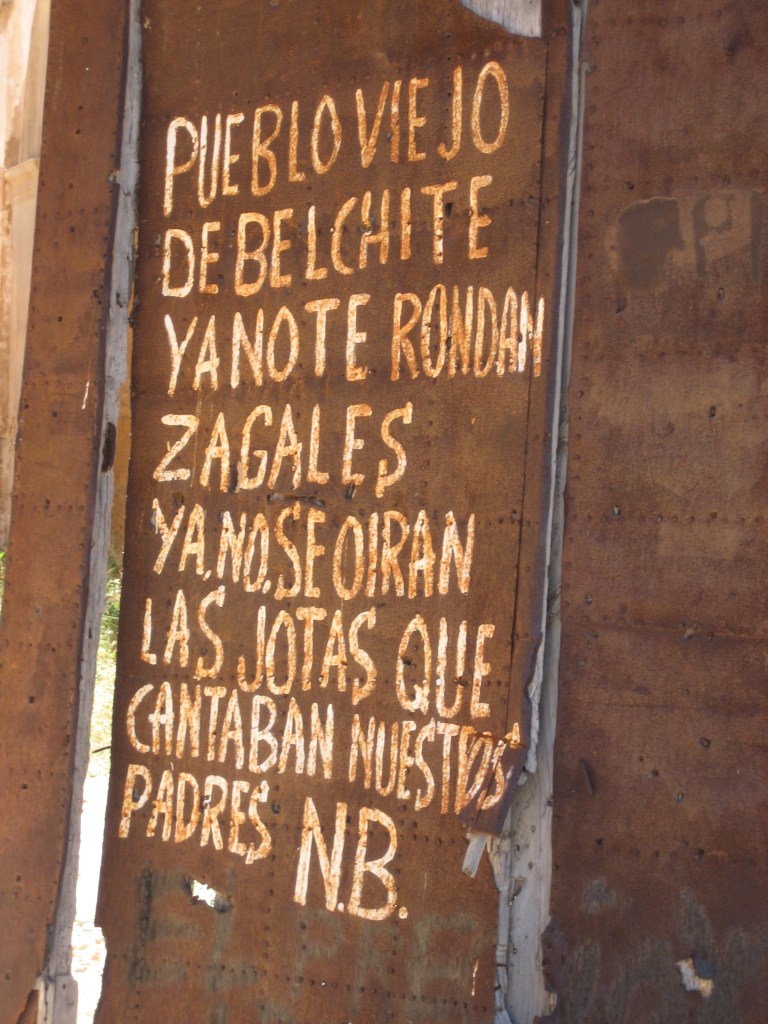 PUEBLO VIEJO
DE BELCHITE
YA NO TE RONDAN
ZAGALES
YA, NO, SE OIRAN
LAS JOTAS QUE
CANTABAN NUESTROS
PADRES N.B.